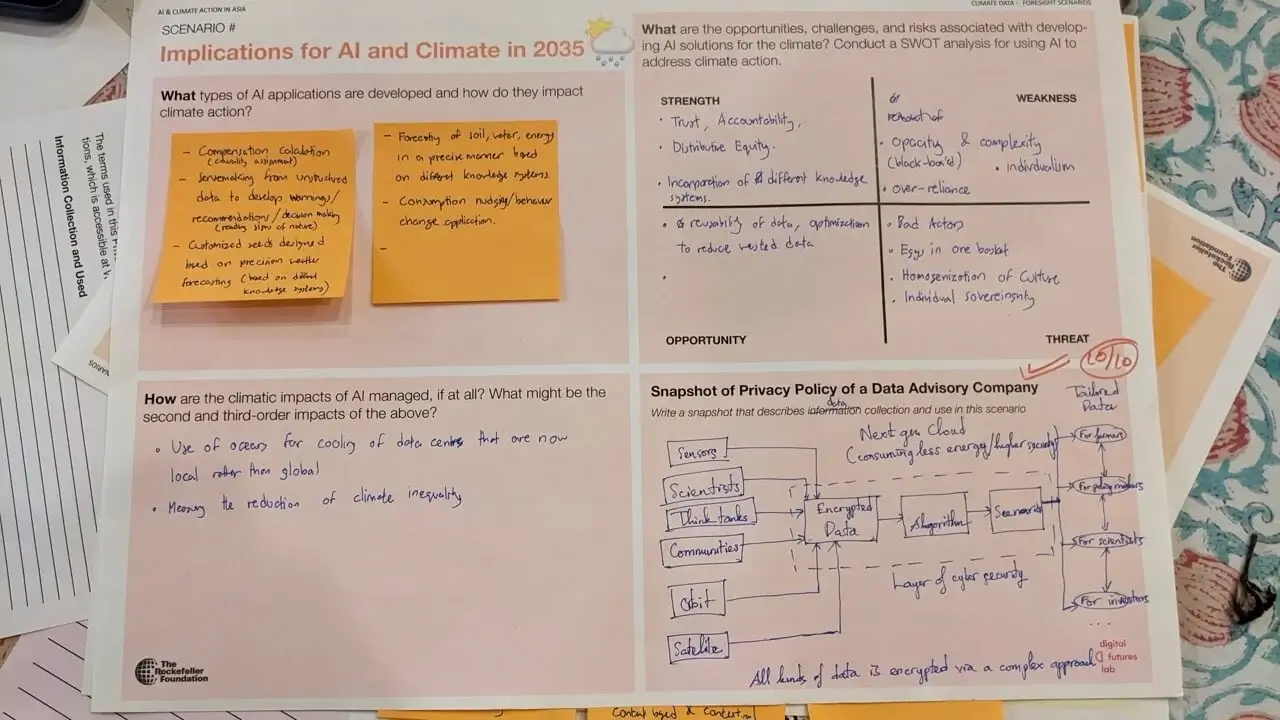 AI & CLIMATE ACTION IN ASIA
CLIMATE DATA - FORESIGHT SCENARIOS
SCENARIO #
Implications for AI and Climate in 2035
What types of AI applications are developed and how do they impact
climate action?
- Compensation calculation
- Sensemaking from unstructured
data to develop warnings/
recommendations/decision making
(reading signs of nature)
- Customized seeds designed
based on precision weather
forecasting (based on different
knowledge systems)
- Forecasting of soil, water, energy
in a precise manner based
on different knowledge systems
- Consumption nudging/behavior
change application.
-
What are the opportunities, challenges, and risks associated with develop-
ing AI solutions for the climate? Conduct a SWOT analysis for using AI to
address climate action.
STRENGTH
• Trust, Accountability,
• Distributive Equity.
• Incorporation of different knowledge
systems.
WEAKNESS
• Opacity & complexity
(black-box'd)
• individualism
• over-reliance
• reusability of data, optimization
to reduce wasted data
•
OPPORTUNITY
• Bad Actors
• Eggs in one basket
• Homogenization of Culture
• Individual sovereignty
THREAT
10/10
How are the climatic impacts of AI managed, if at all? What might be the
second and third-order impacts of the above?
• Use of oceans for cooling of data centres that are now
local rather than global
• Measuring the reduction of climate inequality
The
Rockefeller
Foundation
Snapshot of Privacy Policy of a Data Advisory Company
data
Write a snapshot that describes information collection and use in this scenario
Tailored
Data
Next gen Cloud
(consuming less energy/higher security)
Sensors
Scientists
Think tanks
Communities
Orbit
Satelite
Encrypted
Data
Algorithm
Scenario
Layer of cyber security
For farmers
For policy makers
For scientists
For investors
...
All kinds of data is encrypted via a complex approach
digital
futures
lab
The terms used in this
tions, which is accessible at
Information Collection and Used
The
Rockefeller
Foundation